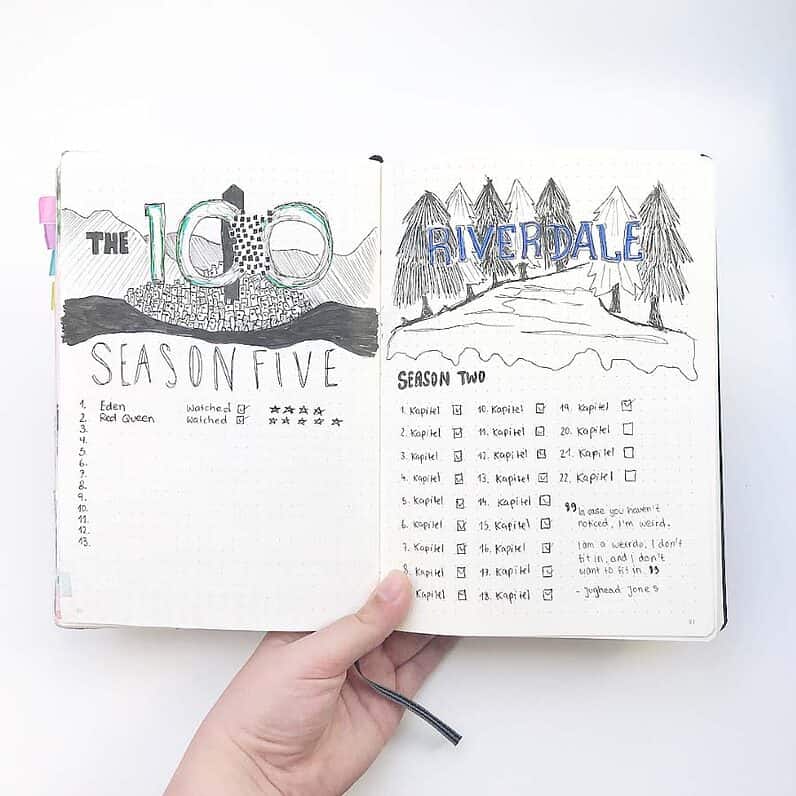 THE 100
SEASON FIVE
1. Eden Watched ☑ ★★★★
2. Red Queen Watched ☑ ★★★★★
3.
4.
5.
6.
7.
8.
9.
10.
11.
12.
13.
RIVERDALE
SEASON TWO
1. Kapitel
2. Kapitel
3. Kapitel
4. Kapitel
5. Kapitel
6. Kapitel
7. Kapitel
8. Kapitel
Kapitel
10. Kapitel
11. Kapitel
12. Kapitel
13. Kapitel
14. Kapitel
15. Kapitel
16. Kapitel
17. Kapitel
18. Kapitel
19. Kapitel
20. Kapitel
21. Kapitel
22. Kapitel
" In case you haven't
noticed, I'm weird.
I am a weirdo, I don't
fit in, and I don't
want to fit in. "
- Jughead Jones